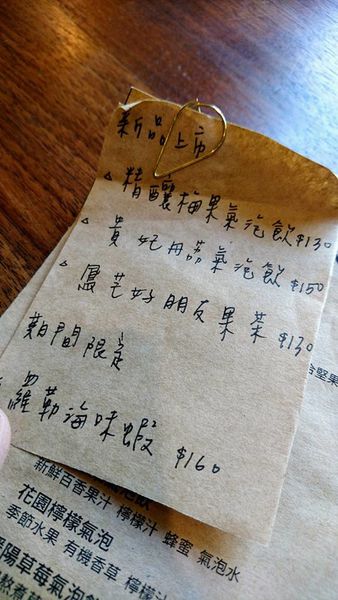 新品上市
△ 精釀梅果氣泡飲 $130
△ 貴妃丹荔氣泡飲 $150
△ 鳳芒好朋友果菜 $130
期間限定
羅勒海味蝦 $160
合堅果
新鮮百香果汁 檸檬汁 蜂蜜 氣泡水
花園檸檬氣泡
季節水果 有機香草 檸檬汁
陽草莓氣泡飲